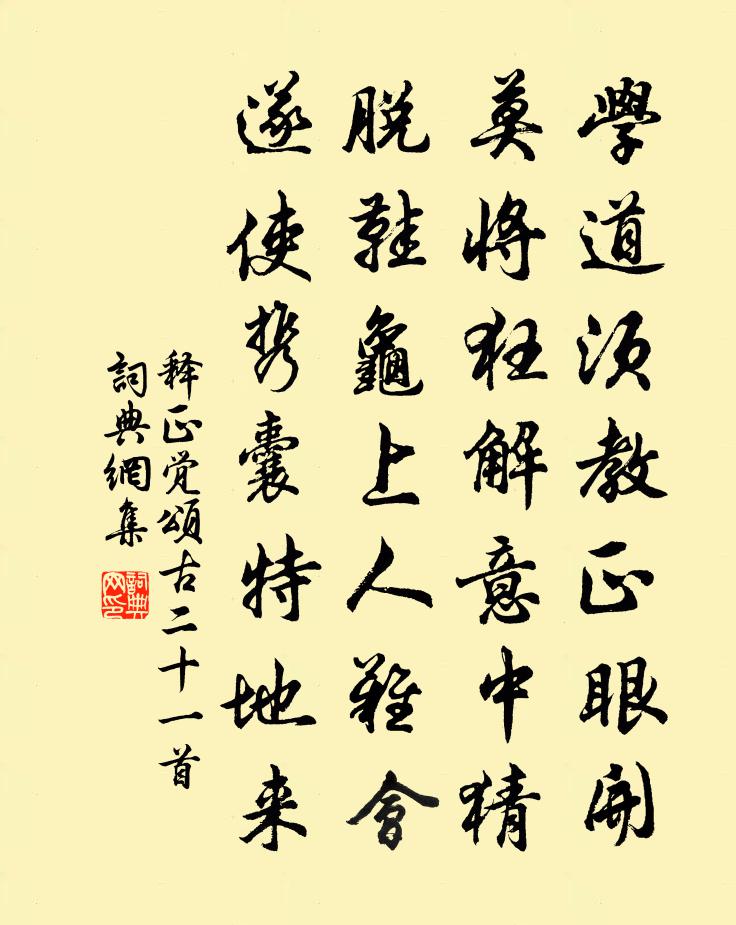 學道須教正眼開
莫將狂解意中猜
脱鞋龜上人難會
遂使携囊特地来
释正觉頌古二十一首
詞典網集
詞典網印